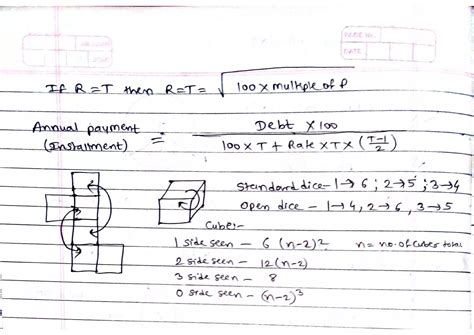 PAGE NO.
DATE
If R=T then R=T= √100 x multiple of P
Annual payment (Instalment) = Debt x 100 / 100 x T + Rate x T x (T-1/2)
Standard dice - 1→6 ; 2→5 ; 3→4
Open dice - 1→4, 2→6, 3→5
Cube:-
1 side seen - 6 (n-2)² n = no. of cubes total
2 side seen - 12(n-2)
3 side seen - 8
0 side seen - (n-2)³